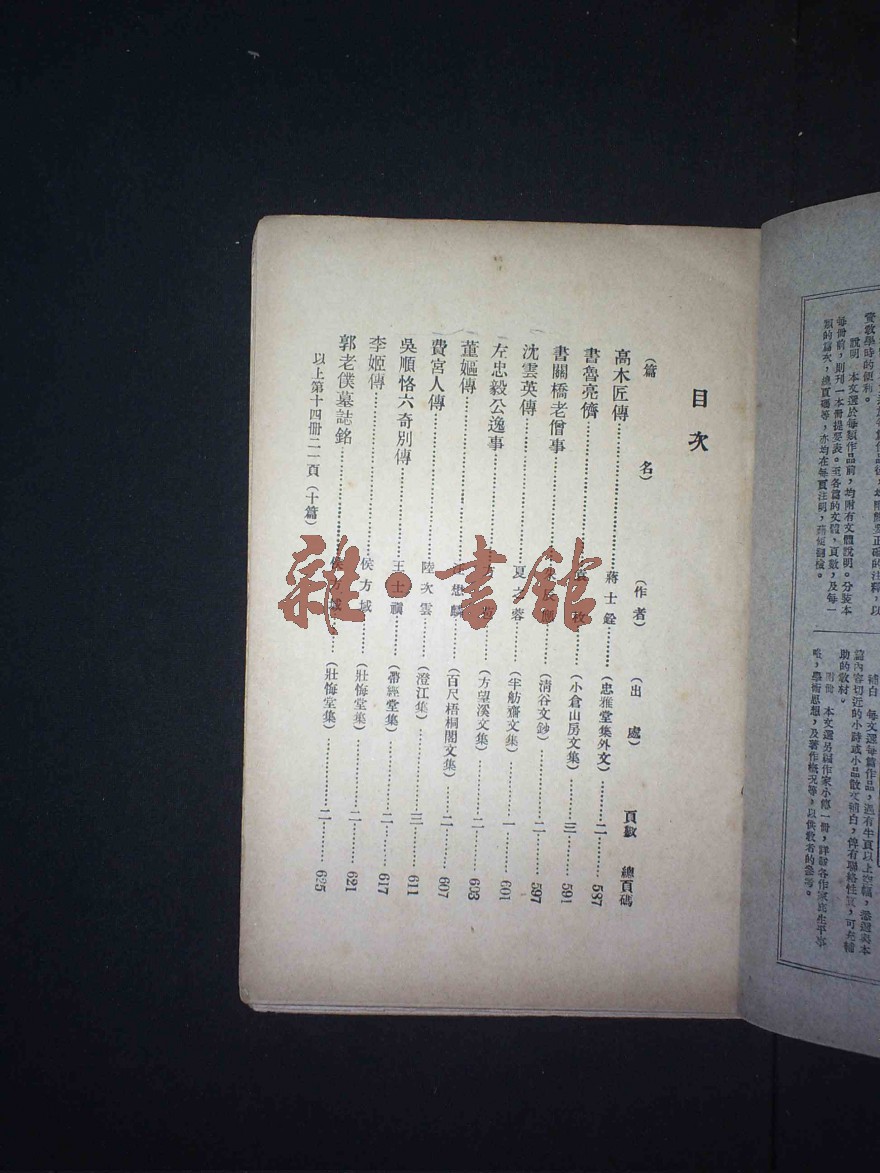 實教學時的便利。
說明 本文選於每類作品前,均附有文體說明。分裝本
每冊前,則刊一本冊提要表。至各篇的文體,頁數,及每一
類的篇次,總頁碼等,亦均在每頁注明,藉便翻檢。
補白 每文選每篇作品,遇有半頁以上空幅,悉選與本
篇內容切近的小詩或小品散文補白,俾有聯絡性質,可充補
助的教材。
附冊 本文選另編作家小傳一冊,詳敘各作家底生平事
略,學術思想,及著作概況等,以供教者的參考。
目次
(篇名) (作者) (出處) 頁數 總頁碼
高木匠傳……蔣士銓……(忠雅堂集外文)……二……587
書魯亮儕……袁枚……(小倉山房文集)……三……591
書關橋老僧事……(清谷文鈔)……二……597
沈雲英傳……夏之蓉……(半舫齋文集)……一……601
左忠毅公逸事……方苞……(方望溪文集)……二……603
董嫗傳……汪懋麟……(百尺梧桐閣文集)……二……607
費宮人傳……陸次雲……(澄江集)……三……611
吳順恪六奇別傳……王士禛……(帶經堂集)……二……617
李姬傳……侯方域……(壯悔堂集)……二……621
郭老僕墓誌銘……侯方域……(壯悔堂集)……二……625
以上第十四冊二一頁(十篇)
雜·書館